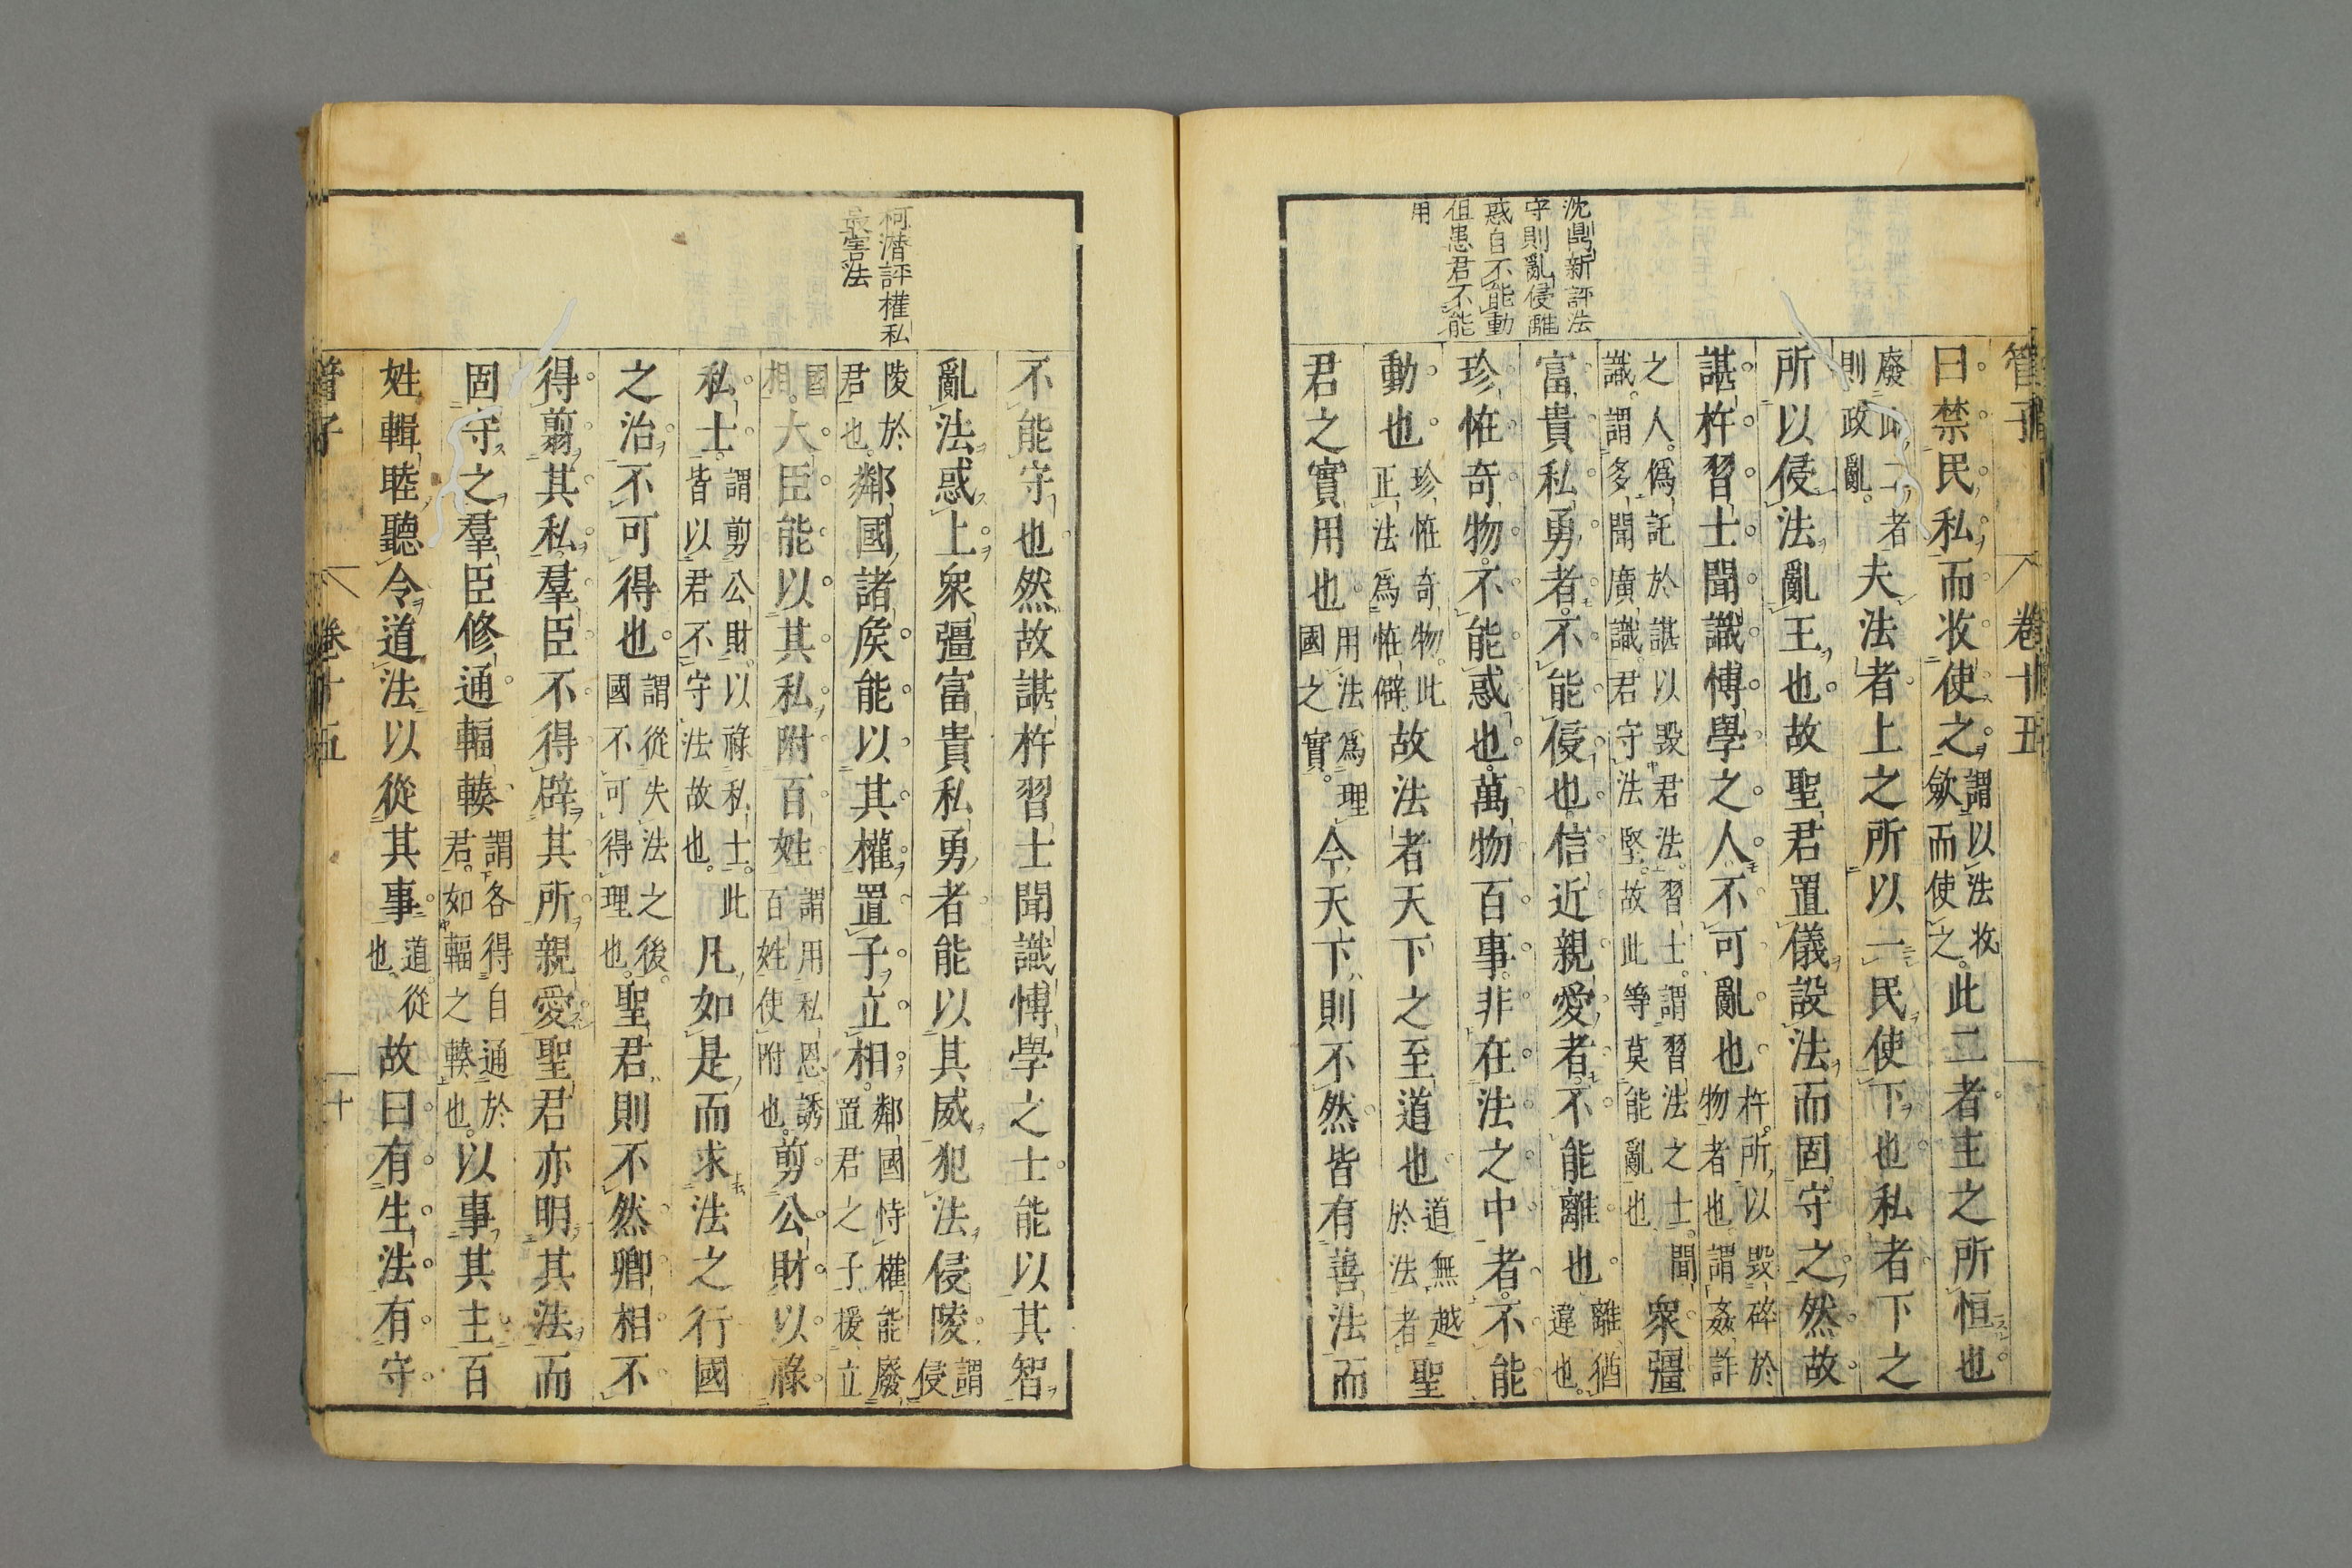 管子
卷十五
曰禁民私而收使之謂以法收歛而使之此二者主之所恒也
廢此二者則政亂夫法者上之所以一民使下也私者下之
所以侵法亂王也故聖君置儀設法而固守之然故
諶杵習士聞識博學之人不可亂也杵所以毀碎於物者也謂姦詐
之人爲託於諶以毀君法習士謂習法之士聞識謂多聞廣識君守法堅故此等莫能亂也衆彊
富貴私勇者不能侵也信近親愛者不能離也離猶違也
珍恠奇物不能惑也萬物百事非在法之中者不能
動也珍恠奇物此正法爲恠僻故法者天下之至道也道無越於法者聖
君之實用也用法爲理國之實今天下則不然皆有善法而
沈鼎新評法
守則亂侵離
惑自不能動
但患君不能
用
不能守也然故諶杵習士聞識博學之士能以其智
亂法惑上衆彊富貴私勇者能以其威犯法侵陵謂侵
陵於君也鄰國諸矦能以其權置子立相鄰國恃權能廢置君之子援立
國相大臣能以其私附百姓謂用私恩誘百姓使附也剪公財以祿
私士謂剪公財以祿私士此皆以君不守法故也凡如是而求法之行國
之治不可得也謂從失法之後國不可得理也聖君則不然卿相不
得翦其私羣臣不得辟其所親愛聖君亦明其法而
固守之羣臣修通輻輳謂各得自通於君如輻之輳也以事其主百
姓輯睦聽令道法以從其事道從也故曰有生法有守
柯潛評權私
最害法
管子
卷十五
十